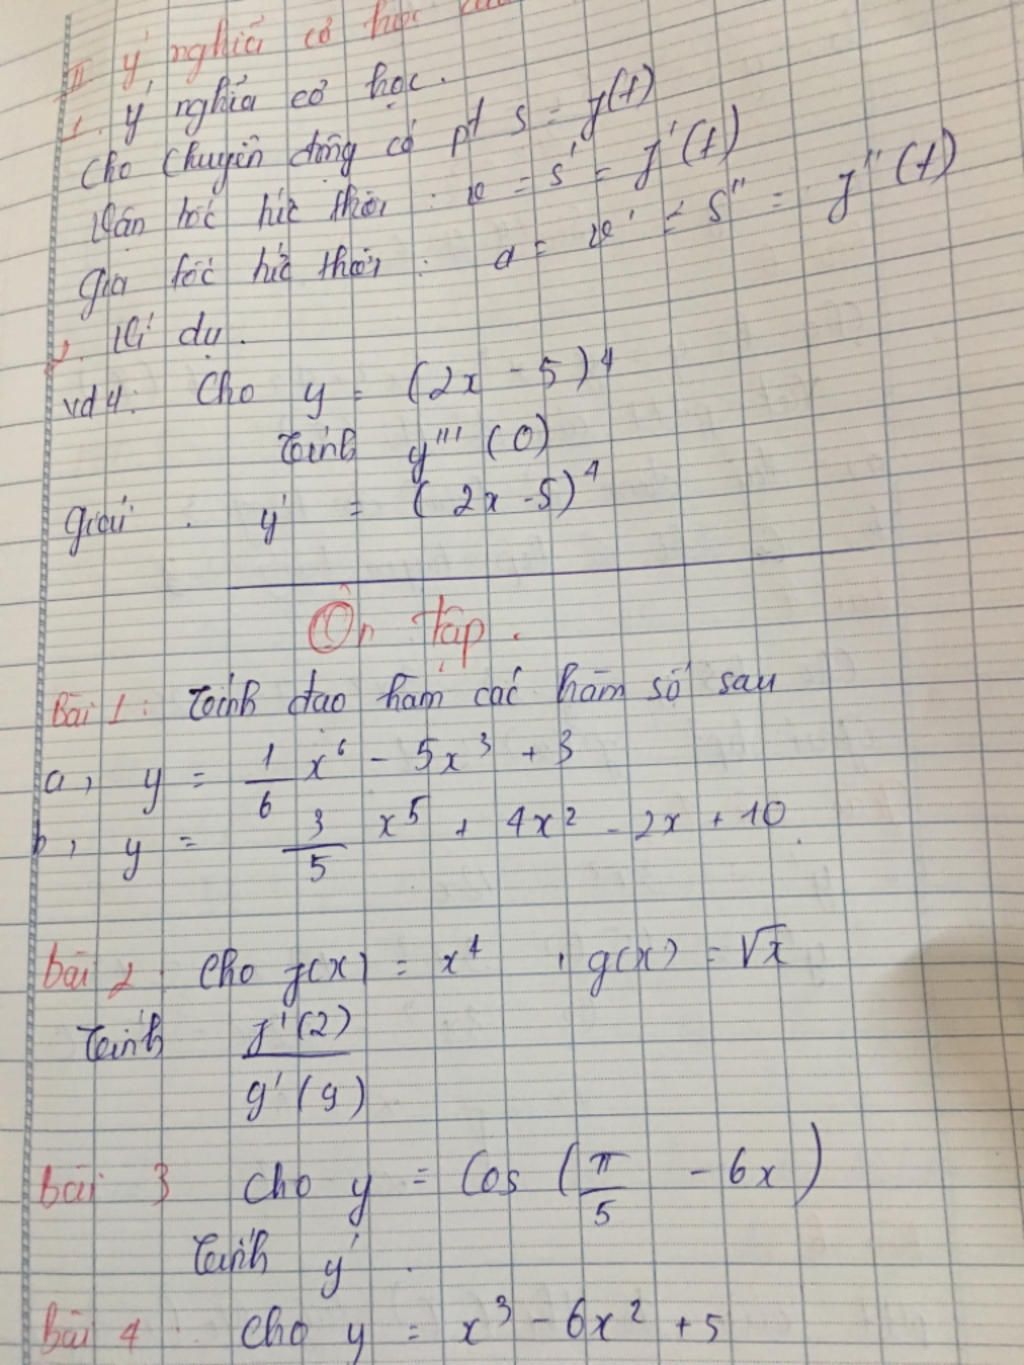 II ý nghĩa cơ học
1. ý nghĩa cơ học.
Cho chuyển động có pt s = f(t)
Vận tốc tức thời : v = s' = f'(t)
gia tốc tức thời : a = v' = s'' = f''(t)
2. Ví dụ.
vd4: Cho y = (2x - 5)^4
Tính y''' (0)
Giải . y' = (2x - 5)^4
Ôn tập.
Bài 1: Tính đạo hàm các hàm số sau
a, y = 1/6 x^6 - 5x^3 + 3
b, y = 3/5 x^5 + 4x^2 - 2x + 10.
Bài 2 Cho f(x) = x^4 , g(x) = √x
Tính f'(2)/g'(9)
Bài 3 Cho y = Cos (π/5 - 6x)
Tính y'.
Bài 4. Cho y = x^3 - 6x^2 + 5